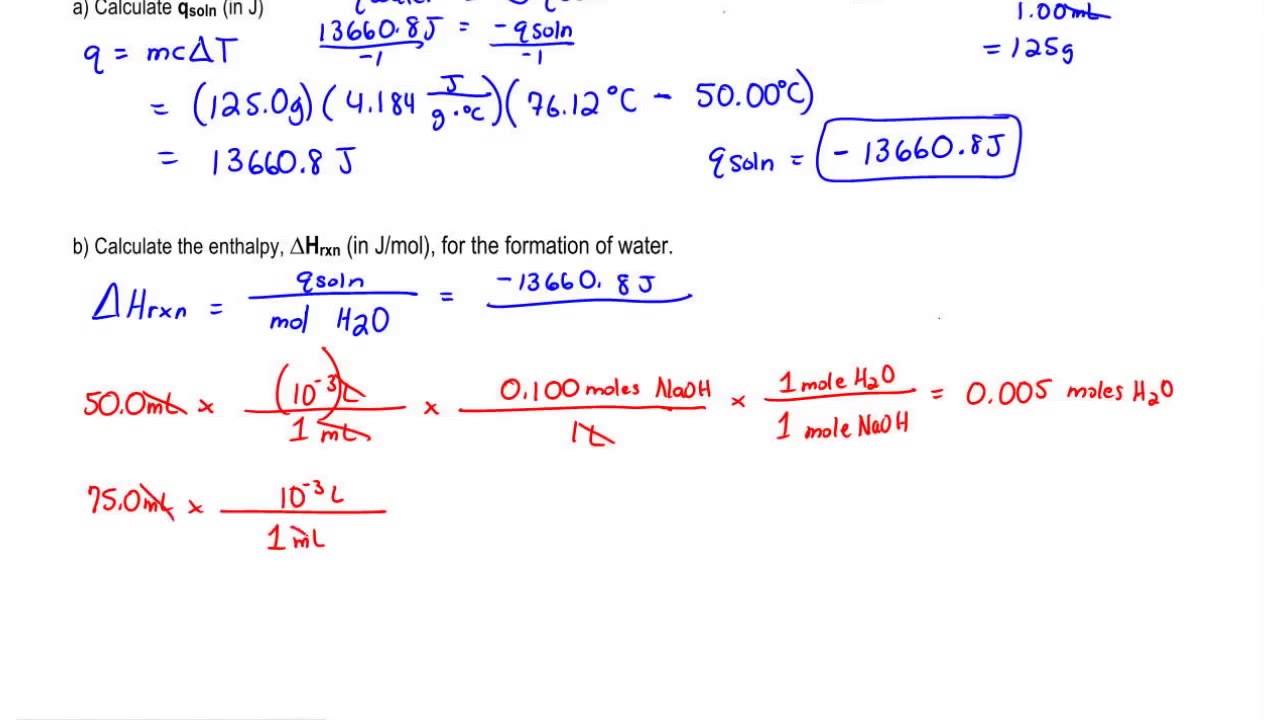 a) Calculate qsoln (in J)
1.00mL
13660.8J = -qsoln
-1 -1
q = mcΔT
= 125g
= (125.0g)(4.184 J/g·°C)(76.12°C - 50.00°C)
= 13660.8 J
qsoln = -13660.8J
b) Calculate the enthalpy, ΔHrxn (in J/mol), for the formation of water.
ΔHrxn = qsoln / mol H2O = -13660.8J
50.0mL x (10⁻³)L / 1 mL x 0.100 moles NaOH / 1L x 1 mole H2O / 1 mole NaOH = 0.005 moles H2O
75.0mL x 10⁻³L / 1mL